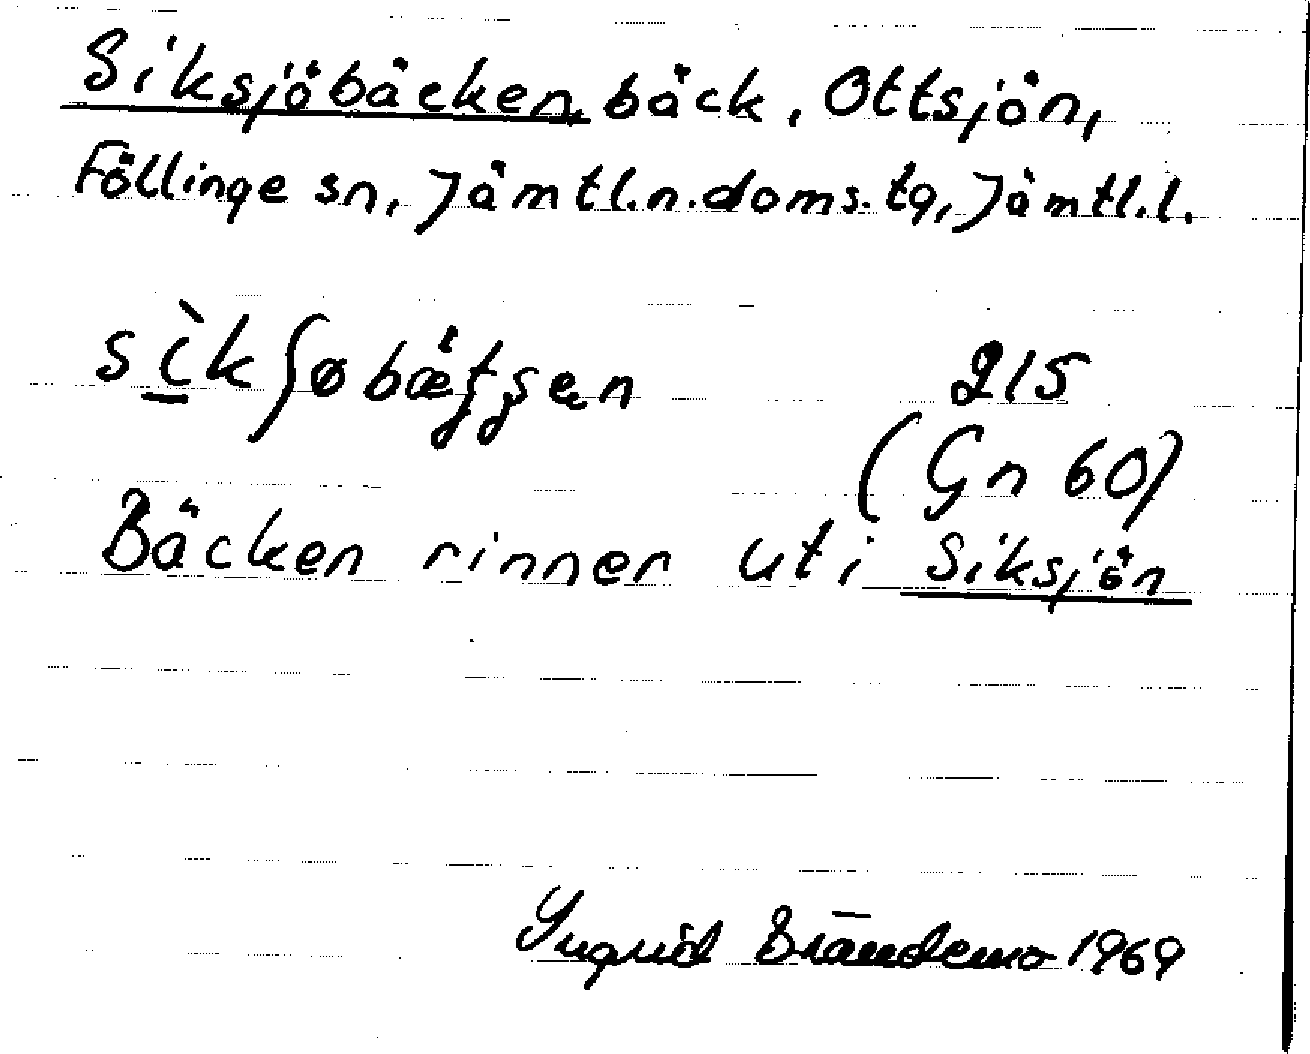 Siksjöbäcken, bäck, Ottsjön,
Föllinge sn, Jämtl.n.doms.tg, Jämtl.l.
215
(Gn 60)
Bäcken rinner uti Siksjön
Ingrid Brändemo 1969